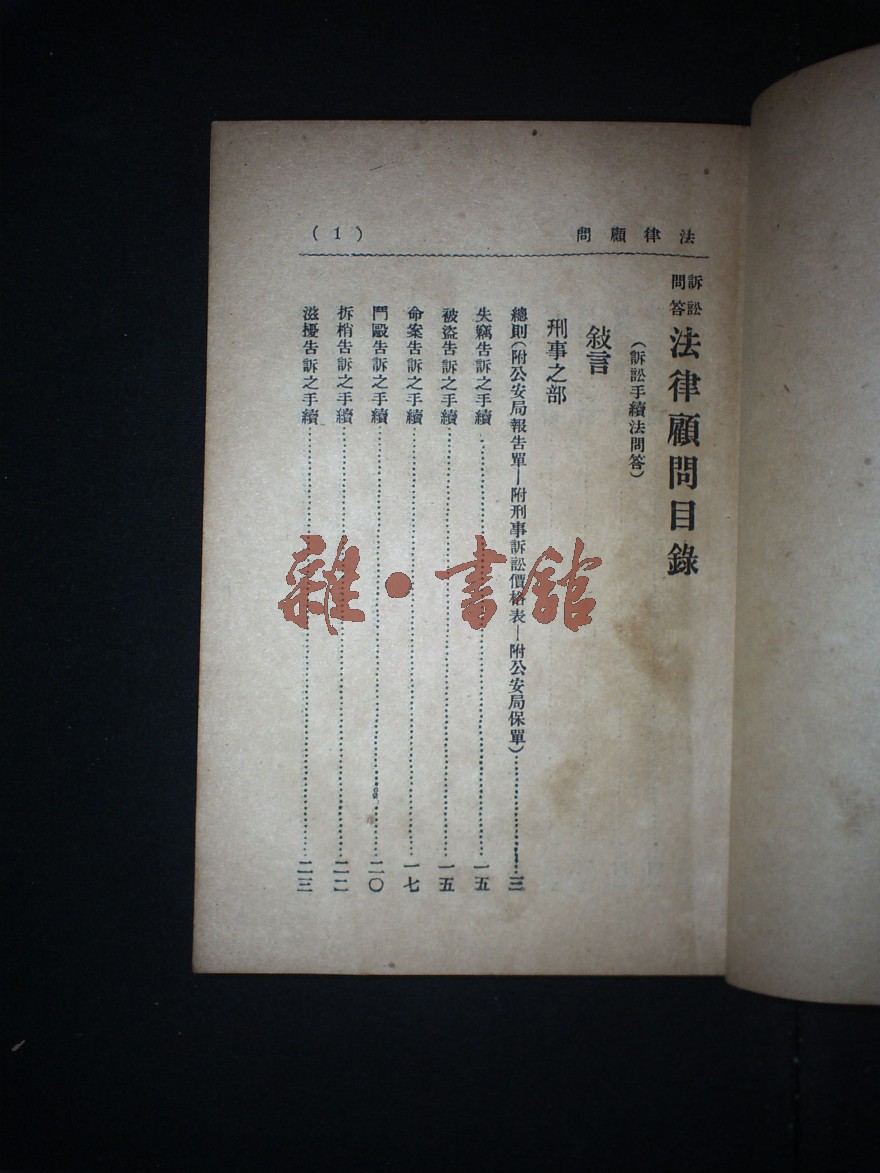 法律顧問
(1)
訴訟問答 法律顧問目錄
(訴訟手續法問答)
敍言
刑事之部
總則(附公安局報告單—附刑事訴訟價格表—附公安局保單)……三
失竊告訴之手續……一五
被盜告訴之手續……一五
命案告訴之手續……一七
鬥毆告訴之手續……二〇
拆梢告訴之手續……二二
滋擾告訴之手續……二三
雜·書館